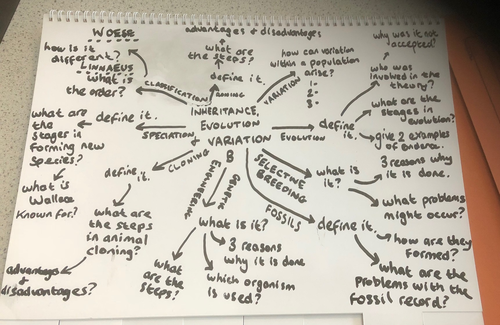 WOESE
how is it
different?
LINNAEUS
what is
the order?
CLASSIFICATION
advantages + disadvantages
what are
the steps?
define it.
CLONING
how can variation
within a population
arise?
1-
2-
3-
VARIATION
why was it not
accepted?
who was
involved in the
theory?
what are the
stages in
evolution?
give 2 examples
of evidence.
define it.
EVOLUTION
INHERITANCE,
EVOLUTION
VARIATION
B
what are
the
stages in
forming new
species?
define it.
SPECIATION
what is
Wallace
known for?
CLONING
define
it.
what are
the steps
in animal
cloning?
advantages
+
disadvantages?
GENETIC
ENGINEERING
what is it?
3 reasons
why it is done
what
are the
steps?
which organism
is used?
SELECTIVE
BREEDING
what is
it?
3 reasons why
it is done.
what problems
might occur?
FOSSILS
define it.
how are they
formed?
what are the
problems with the
fossil record?